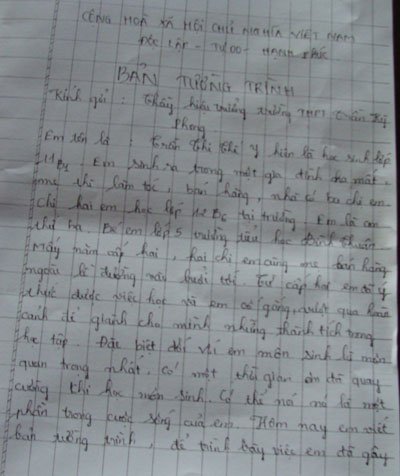 CỘNG HOÀ XÃ HỘI CHỦ NGHĨA VIỆT NAM
ĐỘC LẬP - TỰ DO - HẠNH PHÚC
BẢN TƯỜNG TRÌNH
Kính gửi : Thầy hiệu trưởng trường THPT Trần Kỳ
Phong
Em tên là : Trần Thị Thi Y hiện là học sinh lớp
11B4. Em sinh ra trong một gia đình cha mất,
mẹ thì làm tóc, bán hàng, nhà có ba chị em.
Chị hai em học lớp 12B6 tại trường. Em là con
thứ ba. Bé em lớp 5 trường tiểu học Bình Thuận
Mấy năm cấp hai, hai chị em cùng mẹ bán hàng
ngoài lề đường mỗi buổi tối. Từ cấp hai em đã ý
thức được việc học và em cố gắng vượt qua hoàn
cảnh để giành cho mình những thành tích trong
học tập. Đặc biệt đối với em môn sinh là môn
quan trọng nhất, có một thời gian em đã quay
cuồng khi học môn sinh. Có thể nói nó là một
phần trong cuộc sống của em. Hôm nay em viết
bản tường trình, để trình bày việc em đã gây